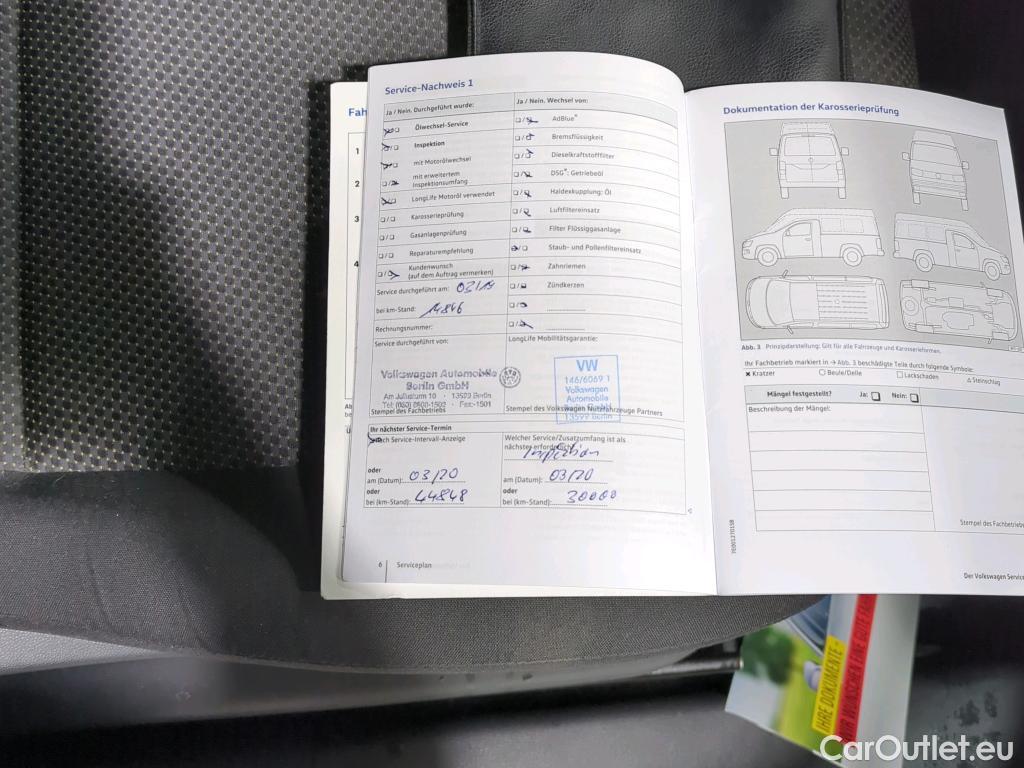 Service-Nachweis 1
Ja / Nein. Durchgeführt wurde:
Ölwechsel-Service
Inspektion
mit Motorölwechsel
mit erweitertem
Inspektionsumfang
LongLife Motoröl verwendet
Karosserieprüfung
Gasanlagenprüfung
Reparaturempfehlung
Kundenwunsch
(auf dem Auftrag vermerken)
Service durchgeführt am: 03/19
bei km-Stand: 14846
Rechnungsnummer:
Service durchgeführt von:
Volkswagen Automobile
Berlin GmbH
Am Juliusturm 10 · 13599 Berlin
Stempel des Fachbetriebs
Ja / Nein. Wechsel von:
AdBlue®
Bremsflüssigkeit
Dieselkraftstofffilter
DSG®: Getriebeöl
Haldexkupplung: Öl
Luftfiltereinsatz
Filter Flüssiggasanlage
Staub- und Pollenfiltereinsatz
Zahnriemen
Zündkerzen
LongLife Mobilitätsgarantie:
VW
146/6069 1
Volkswagen
Automobile
Berlin GmbH
13599 Berlin
Stempel des Volkswagen Nutzfahrzeuge Partners
Ihr nächster Service-Termin
nach Service-Intervall-Anzeige
oder
am (Datum): 03/20
oder
bei (km-Stand): 44848
Welcher Service/Zusatzumfang ist als
nächster erforderlich?
Inspektion
am (Datum): 03/20
oder
bei (km-Stand): 30000
6
Serviceplan
Fah
1
2
3
4
Dokumentation der Karosserieprüfung
Abb. 3 Prinzipdarstellung: Gilt für alle Fahrzeuge und Karosserieformen.
Ihr Fachbetrieb markiert in → Abb. 3 beschädigte Teile durch folgende Symbole:
× Kratzer
○ Beule/Delle
□ Lackschaden
△ Steinschlag
Mängel festgestellt? Ja: Nein:
Beschreibung der Mängel:
Stempel des Fachbetriebs
7E0012701SB
Der Volkswagen Service
IHRE DOKUMENTE -
WIR WÜNSCHEN EINE GUTE FA
CarOutlet.eu